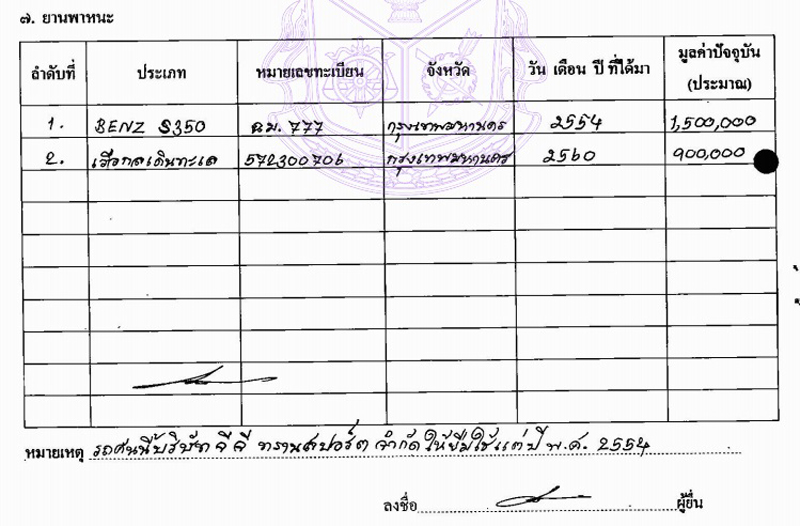 ๗. ยานพาหนะ
ลำดับที่ ประเภท หมายเลขทะเบียน จังหวัด วัน เดือน ปี ที่ได้มา มูลค่าปัจจุบัน (ประมาณ)
1. BENZ S350 ฉม. 777 กรุงเทพมหานคร 2554 1,500,000
2. เรือกลเดินทะเล 572300706 กรุงเทพมหานคร 2560 900,000
หมายเหตุ รถคันนี้บริษัท จี จี ทรานสปอร์ต จำกัด ให้ยืมใช้แต่ปี พ.ศ. 2554
ลงชื่อ ผู้ยื่น